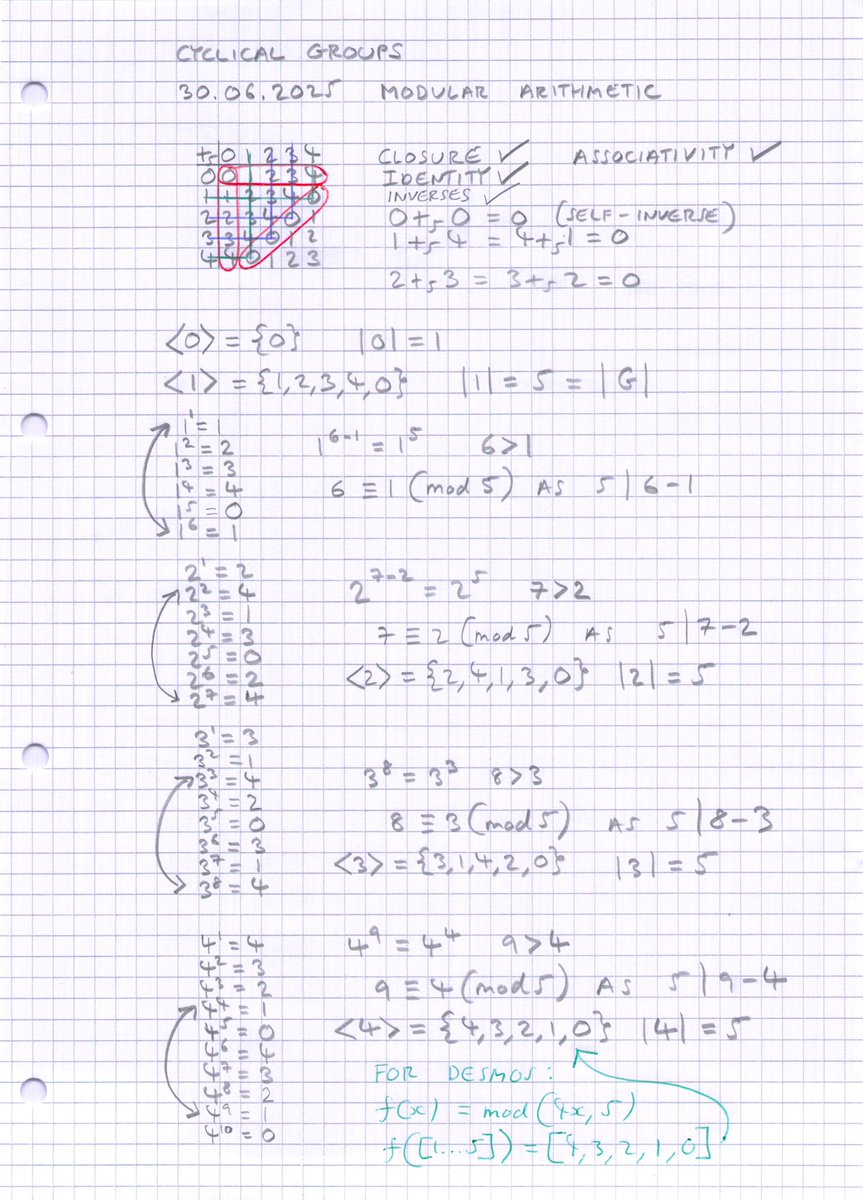 CYCLICAL GROUPS
30.06.2025 MODULAR ARITHMETIC
+₅ 0 1 2 3 4
0 0 1 2 3 4
1 1 2 3 4 0
2 2 3 4 0 1
3 3 4 0 1 2
4 4 0 1 2 3
CLOSURE ✓ ASSOCIATIVITY ✓
IDENTITY ✓
INVERSES ✓
0 +₅ 0 = 0 (SELF-INVERSE)
1 +₅ 4 = 4 +₅ 1 = 0
2 +₅ 3 = 3 +₅ 2 = 0
<0> = {0} |0| = 1
<1> = {1,2,3,4,0} |1| = 5 = |G|
1¹ = 1
1² = 2
1³ = 3
1⁴ = 4
1⁵ = 0
1⁶ = 1
1⁶⁻¹ = 1⁵ 6>1
6 ≡ 1 (mod 5) AS 5 | 6-1
2¹ = 2
2² = 4
2³ = 1
2⁴ = 3
2⁵ = 0
2⁶ = 2
2⁷ = 4
2⁷⁻² = 2⁵ 7>2
7 ≡ 2 (mod 5) AS 5 | 7-2
<2> = {2,4,1,3,0} |2| = 5
3¹ = 3
3² = 1
3³ = 4
3⁴ = 2
3⁵ = 0
3⁶ = 3
3⁷ = 1
3⁸ = 4
3⁸ = 3³ 8>3
8 ≡ 3 (mod 5) AS 5 | 8-3
<3> = {3,1,4,2,0} |3| = 5
4¹ = 4
4² = 3
4³ = 2
4⁴ = 1
4⁵ = 0
4⁶ = 4
4⁷ = 3
4⁸ = 2
4⁹ = 1
4¹⁰ = 0
4⁹ = 4⁴ 9>4
9 ≡ 4 (mod 5) AS 5 | 9-4
<4> = {4,3,2,1,0} |4| = 5
FOR DESMOS:
f(x) = mod(4x, 5)
f([1...5]) = [4,3,2,1,0]